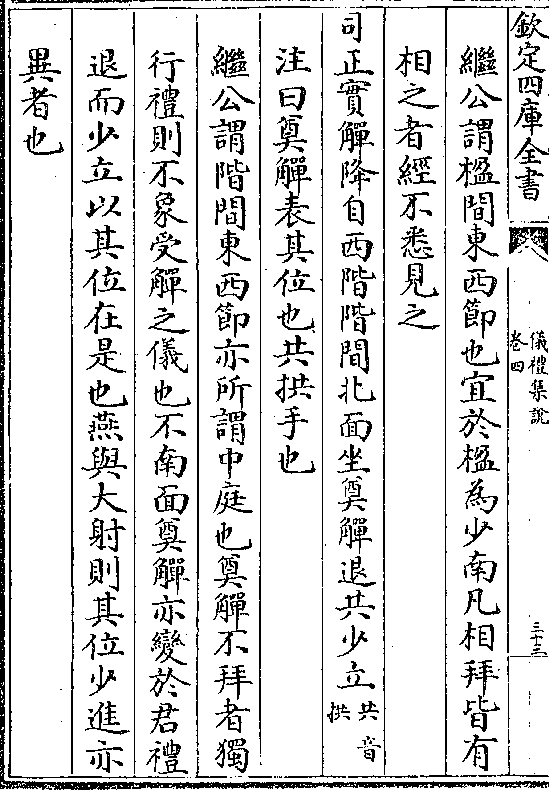 欽定四庫全書
儀禮集說
卷四
三十三
繼公謂楹間東西節也宜於楹為少南凡相拜皆有
相之者經不悉見之
司正實觶降自西階階間北面坐奠觶退共少立共音拱
注曰奠觶表其位也共拱手也
繼公謂階間東西節亦所謂中庭也奠觶不拜者獨
行禮則不象受觶之儀也不南面奠觶亦變於君禮
退而少立以其位在是也燕與大射則其位少進亦
異者也